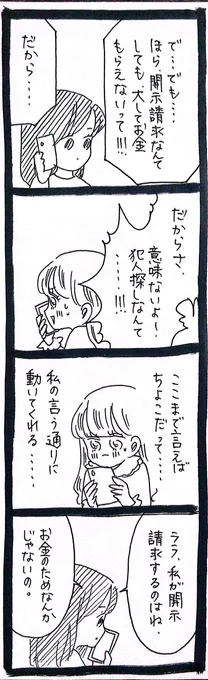 で…でも‥‥
ほら、開示請求なんて
しても、大してお金
もらえないって!!!
だから‥‥
だからさ、
意味ないよー!
犯人探しなんて
‥‥!!!
ここまで言えば
ちょこだって‥‥
私の言う通りに
動いてくれる‥‥‥
ララ、私が開示
請求するのはね、
お金のためなんか
じゃないの。